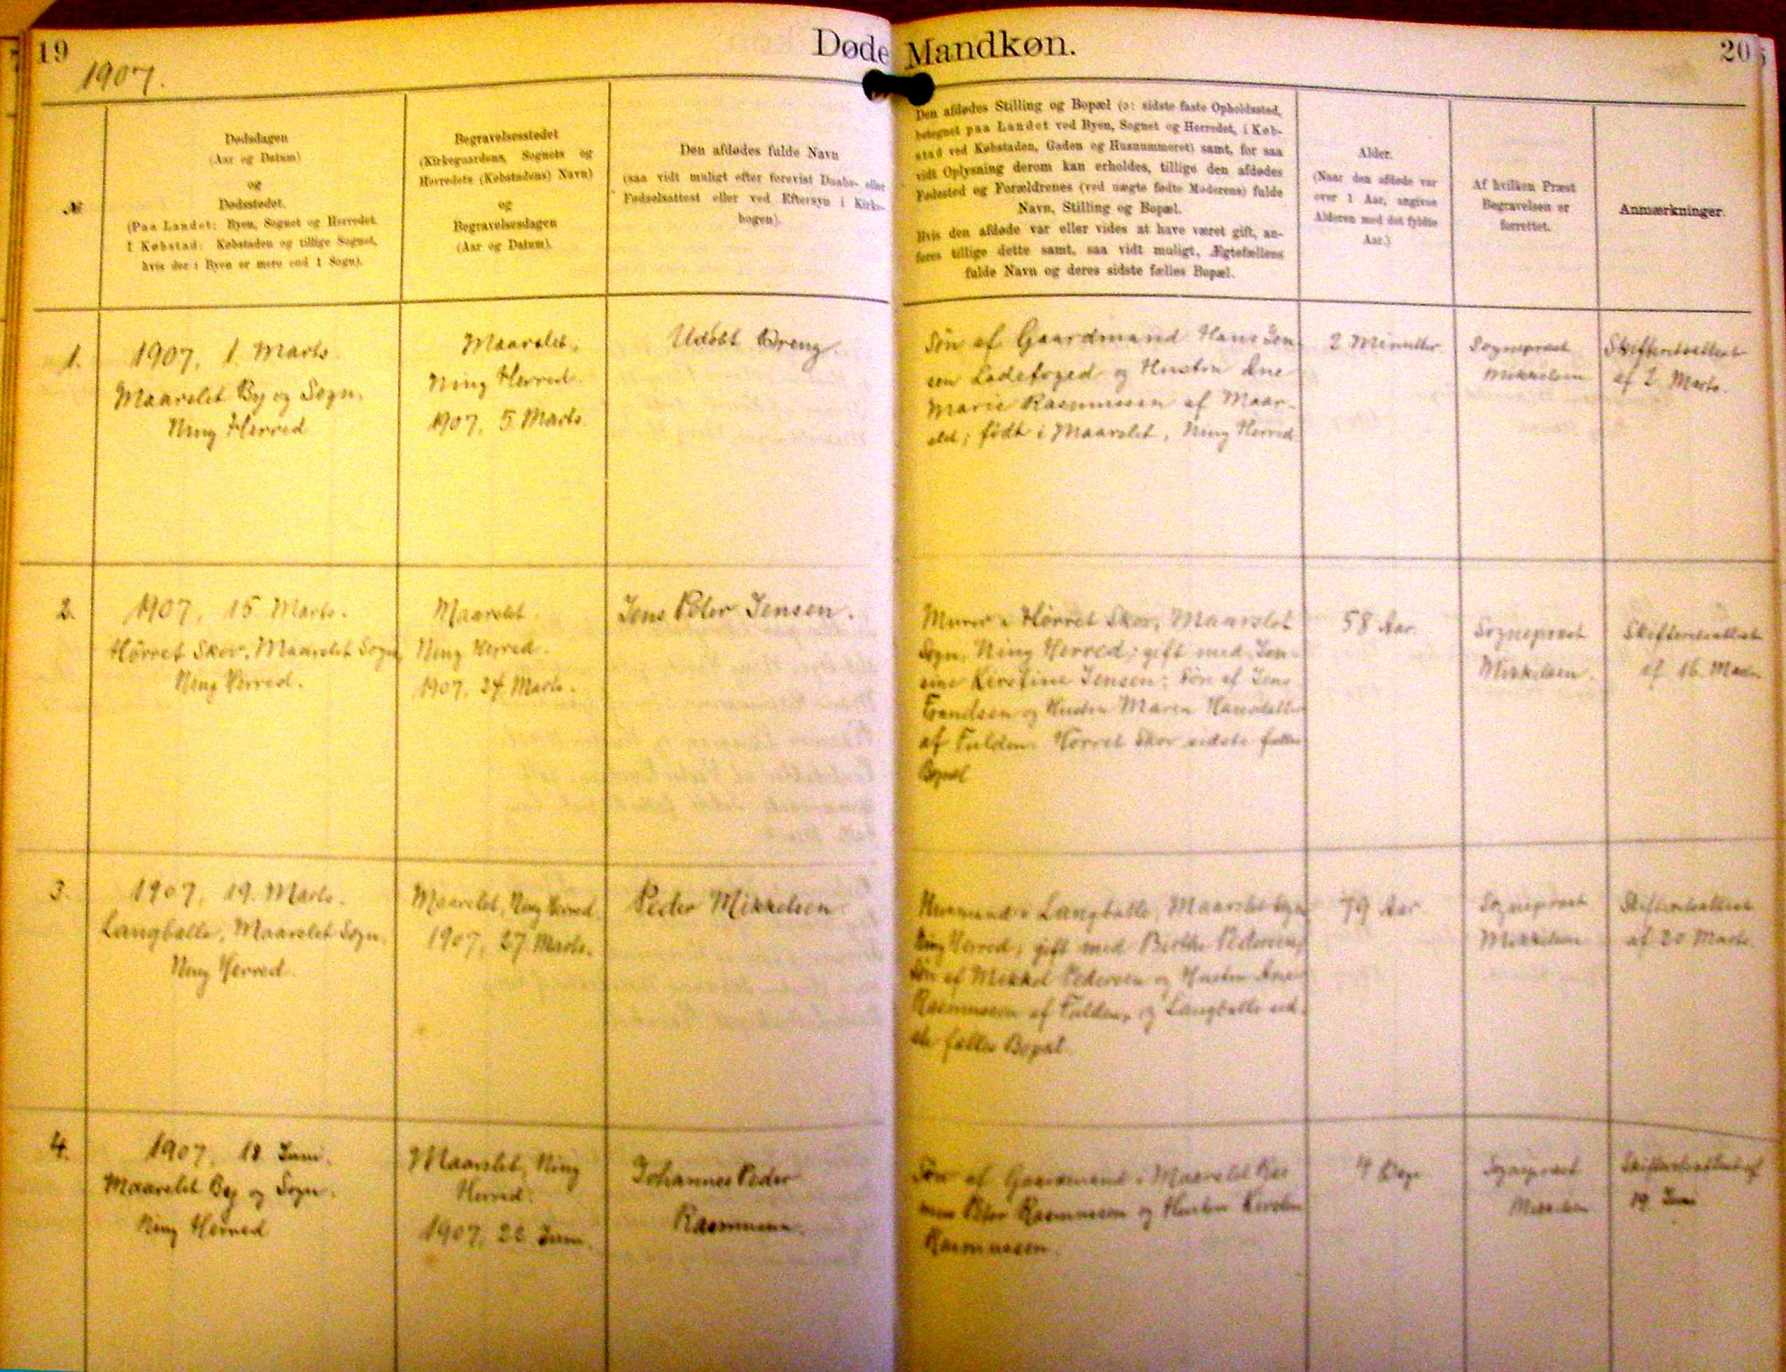 19
1907.
Døde Mandkøn.
20
№
Dødsdagen
(Aar og Datum)
og
Dødsstedet.
(Paa Landet: Byen, Sognet og Herredet.
I Købstad: Købstaden og tillige Sognet,
hvis der i Byen er mere end 1 Sogn).
Begravelsesstedet
(Kirkegaardens, Sognets og
Herredets (Købstadens) Navn)
og
Begravelsesdagen
(Aar og Datum).
Den afdødes fulde Navn
(saa vidt muligt efter forevist Daabs- eller
Fødselsattest eller ved Eftersyn i Kirke-
bogen).
Den afdødes Stilling og Bopæl (o: sidste faste Opholdssted,
betegnet paa Landet ved Byen, Sognet og Herredet, i Køb-
stad ved Købstaden, Gaden og Husnummeret) samt, for saa
vidt Oplysning derom kan erholdes, tillige den afdødes
Fødested og Forældrenes (ved uægte fødte Moderens) fulde
Navn, Stilling og Bopæl.
Hvis den afdøde var eller vides at have været gift, an-
føres tillige dette samt, saa vidt muligt, Ægtefællens
fulde Navn og deres sidste fælles Bopæl.
Alder.
(Naar den afdøde var
over 1 Aar, angives
Alderen med det fyldte
Aar.)
Af hvilken Præst
Begravelsen er
forrettet.
Anmærkninger.
1.
1907, 1. Marts.
Maarslet By og Sogn,
Ning Herred
Maarslet,
Ning Herred.
1907, 5. Marts.
Udøbt Dreng.
Søn af Gaardmand Hans Jen-
sen Ladefoged og Hustru Ane
Marie Rasmussen af Maar-
slet; født i Maarslet, Ning Herred
2 Minutter
Sognepræst
Mikkelsen
Skifteretsattest
af 2. Marts.
2.
1907, 15. Marts.
Hørret Skov, Maarslet Sogn,
Ning Herred.
Maarslet.
Ning Herred.
1907, 24. Marts.
Jens Peter Jensen.
Murer i Hørret Skov, Maarslet
Sogn, Ning Herred; gift med Jen-
sine Kirstine Jensen; Søn af Jens
Frandsen og Hustru Maren Hansdatter
af Fulden. Hørret Skov sidste fælles
Bopæl
58 Aar.
Sognepræst
Mikkelsen.
Skifteretsattest
af 16. Marts
3.
1907, 19. Marts.
Langballe, Maarslet Sogn,
Ning Herred.
Maarslet, Ning Herred.
1907, 27. Marts.
Peder Mikkelsen
Husmand i Langballe, Maarslet Sogn
Ning Herred; gift med Birthe Pedersen;
Søn af Mikkel Pedersen og Hustru Ane
Rasmussen af Fulden, og Langballe sid-
ste fælles Bopæl.
79 Aar
Sognepræst
Mikkelsen
Skifteretsattest
af 20 Marts.
4.
1907, 18. Juni.
Maarslet By og Sogn.
Ning Herred
Maarslet, Ning
Herred.
1907, 22. Juni.
Johannes Peder
Rasmussen.
Søn af Gaardmand i Maarslet Ras-
mus Peter Rasmussen og Hustru Kirsten
Rasmussen.
4 Dage
Sognepræst
Mikkelsen
Skifteretsattest af
19. Juni